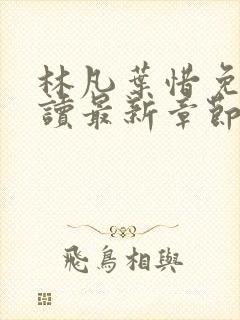 林凡葉惜免
讀最新章節
飛鳥相與